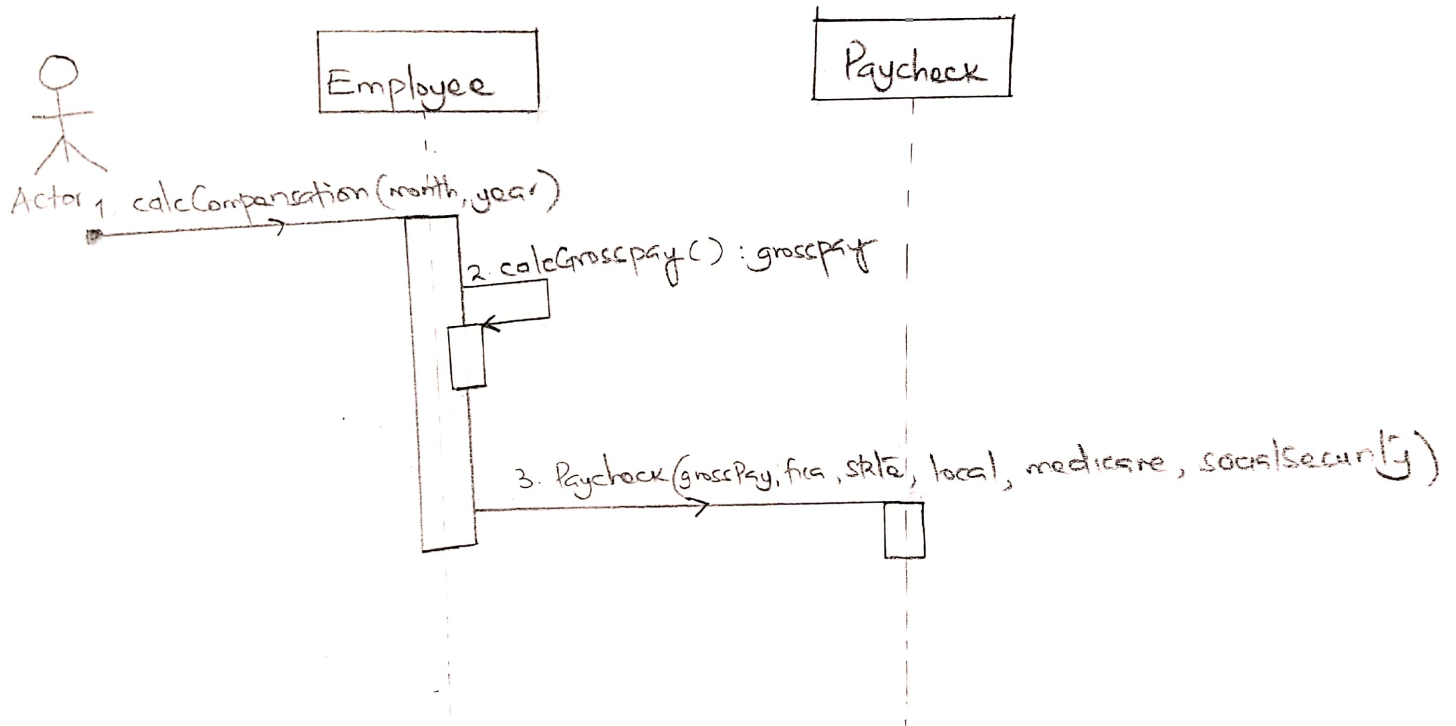 Employee
Paycheck
Actor
1. calcCompensation(month, year)
2. calcGrosspay() : grosspay
3. Paycheck(grossPay, fica, state, local, medicare, socialSecurity)